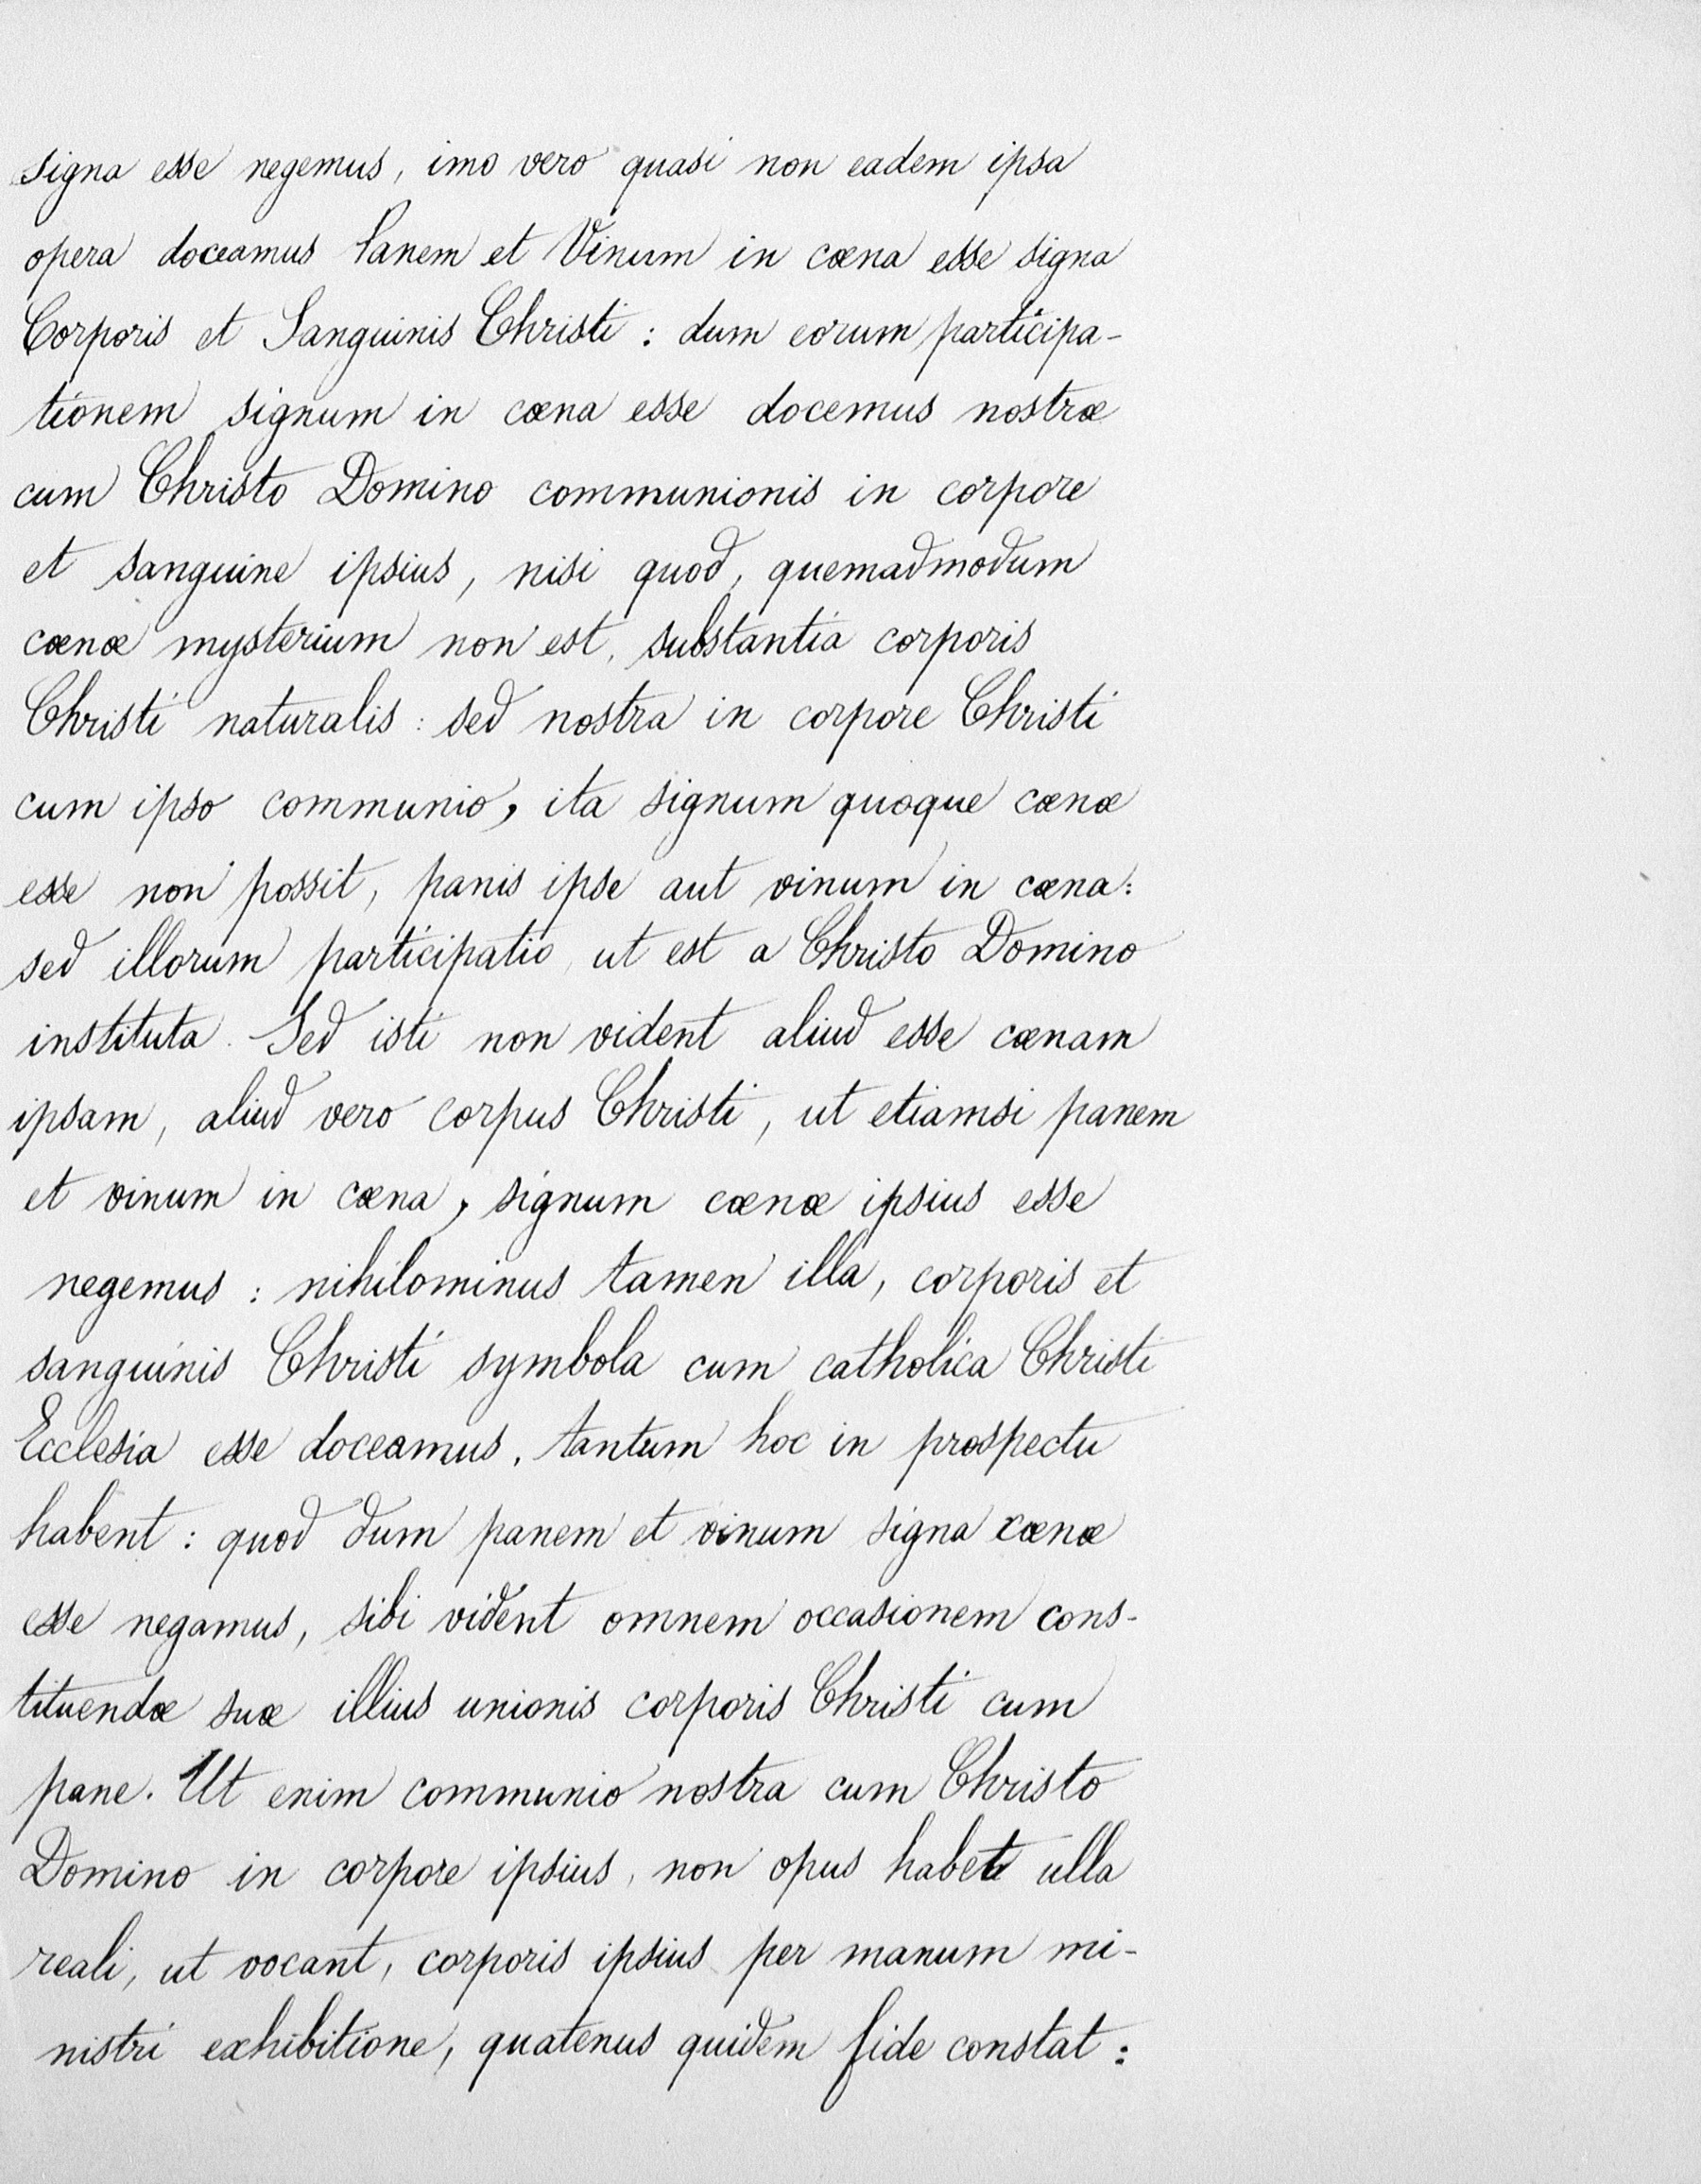 signa esse negemus, imo vero quasi non eadem ipsa
opera doceamus Panem et Vinum in cœna esse signa
Corporis et Sanguinis Christi : dum eorum participa-
tionem signum in cœna esse docemus nostræ
cum Christo Domino communionis in corpore
et sanguine ipsius, nisi quod, quemadmodum
cœnæ mysterium non est, substantia corporis
Christi naturalis : sed nostra in corpore Christi
cum ipso communio, ita signum quoque cœnæ
esse non possit, panis ipse aut vinum in cœna :
sed illorum participatio, ut est a Christo Domino
instituta. Sed isti non vident aliud esse cœnam
ipsam, aliud vero corpus Christi, ut etiamsi panem
et vinum in cœna, signum cœnæ ipsius esse
negemus : nihilominus tamen illa, corporis et
sanguinis Christi symbola cum catholica Christi
Ecclesia esse doceamus, tantum hoc in prospectu
habent : quod dum panem et vinum signa cœnæ
esse negamus, sibi vident omnem occasionem cons-
tituendæ suæ illius unionis corporis Christi cum
pane. Ut enim communio nostra cum Christo
Domino in corpore ipsius, non opus habet ulla
reali, ut vocant, corporis ipsius per manum mi-
nistri exhibitione, quatenus quidem fide constat :